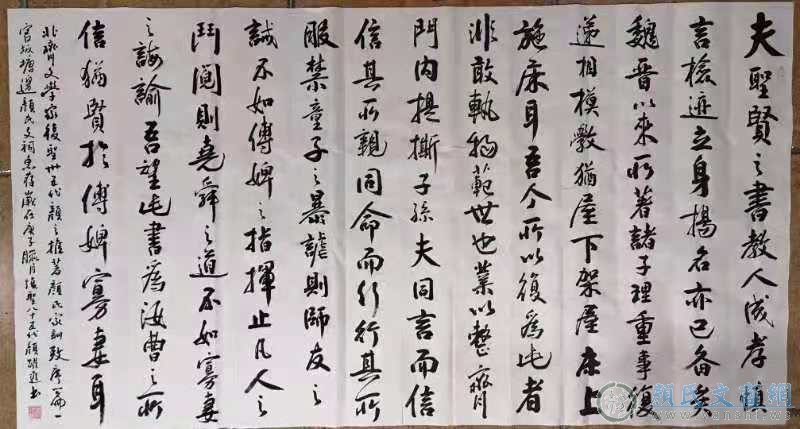 夫聖賢之書教人成孝慎
言檢迹立身揚名亦已備矣
魏晉以來所著諸子理重事復
遞相模斆猶屋下架屋床上
施床耳吾今所以復為此者
非敢軌物範世也業以整齊
門內提撕子孫夫同言而信
信其所親同命而行行其所
服禁童子之暴謔則師友之
誡不如傅婢之指揮止凡人之
鬥鬩則堯舜之道不如寡妻
之誨諭吾望此書為汝曹之所
信猶賢於傅婢寡妻耳
北齊文學家復聖卅五代顏之推著顏氏家訓致序篇一
塘邊顏氏文祠惠存歲在庚子臘月復聖八十五代顏書
顏氏文獻網